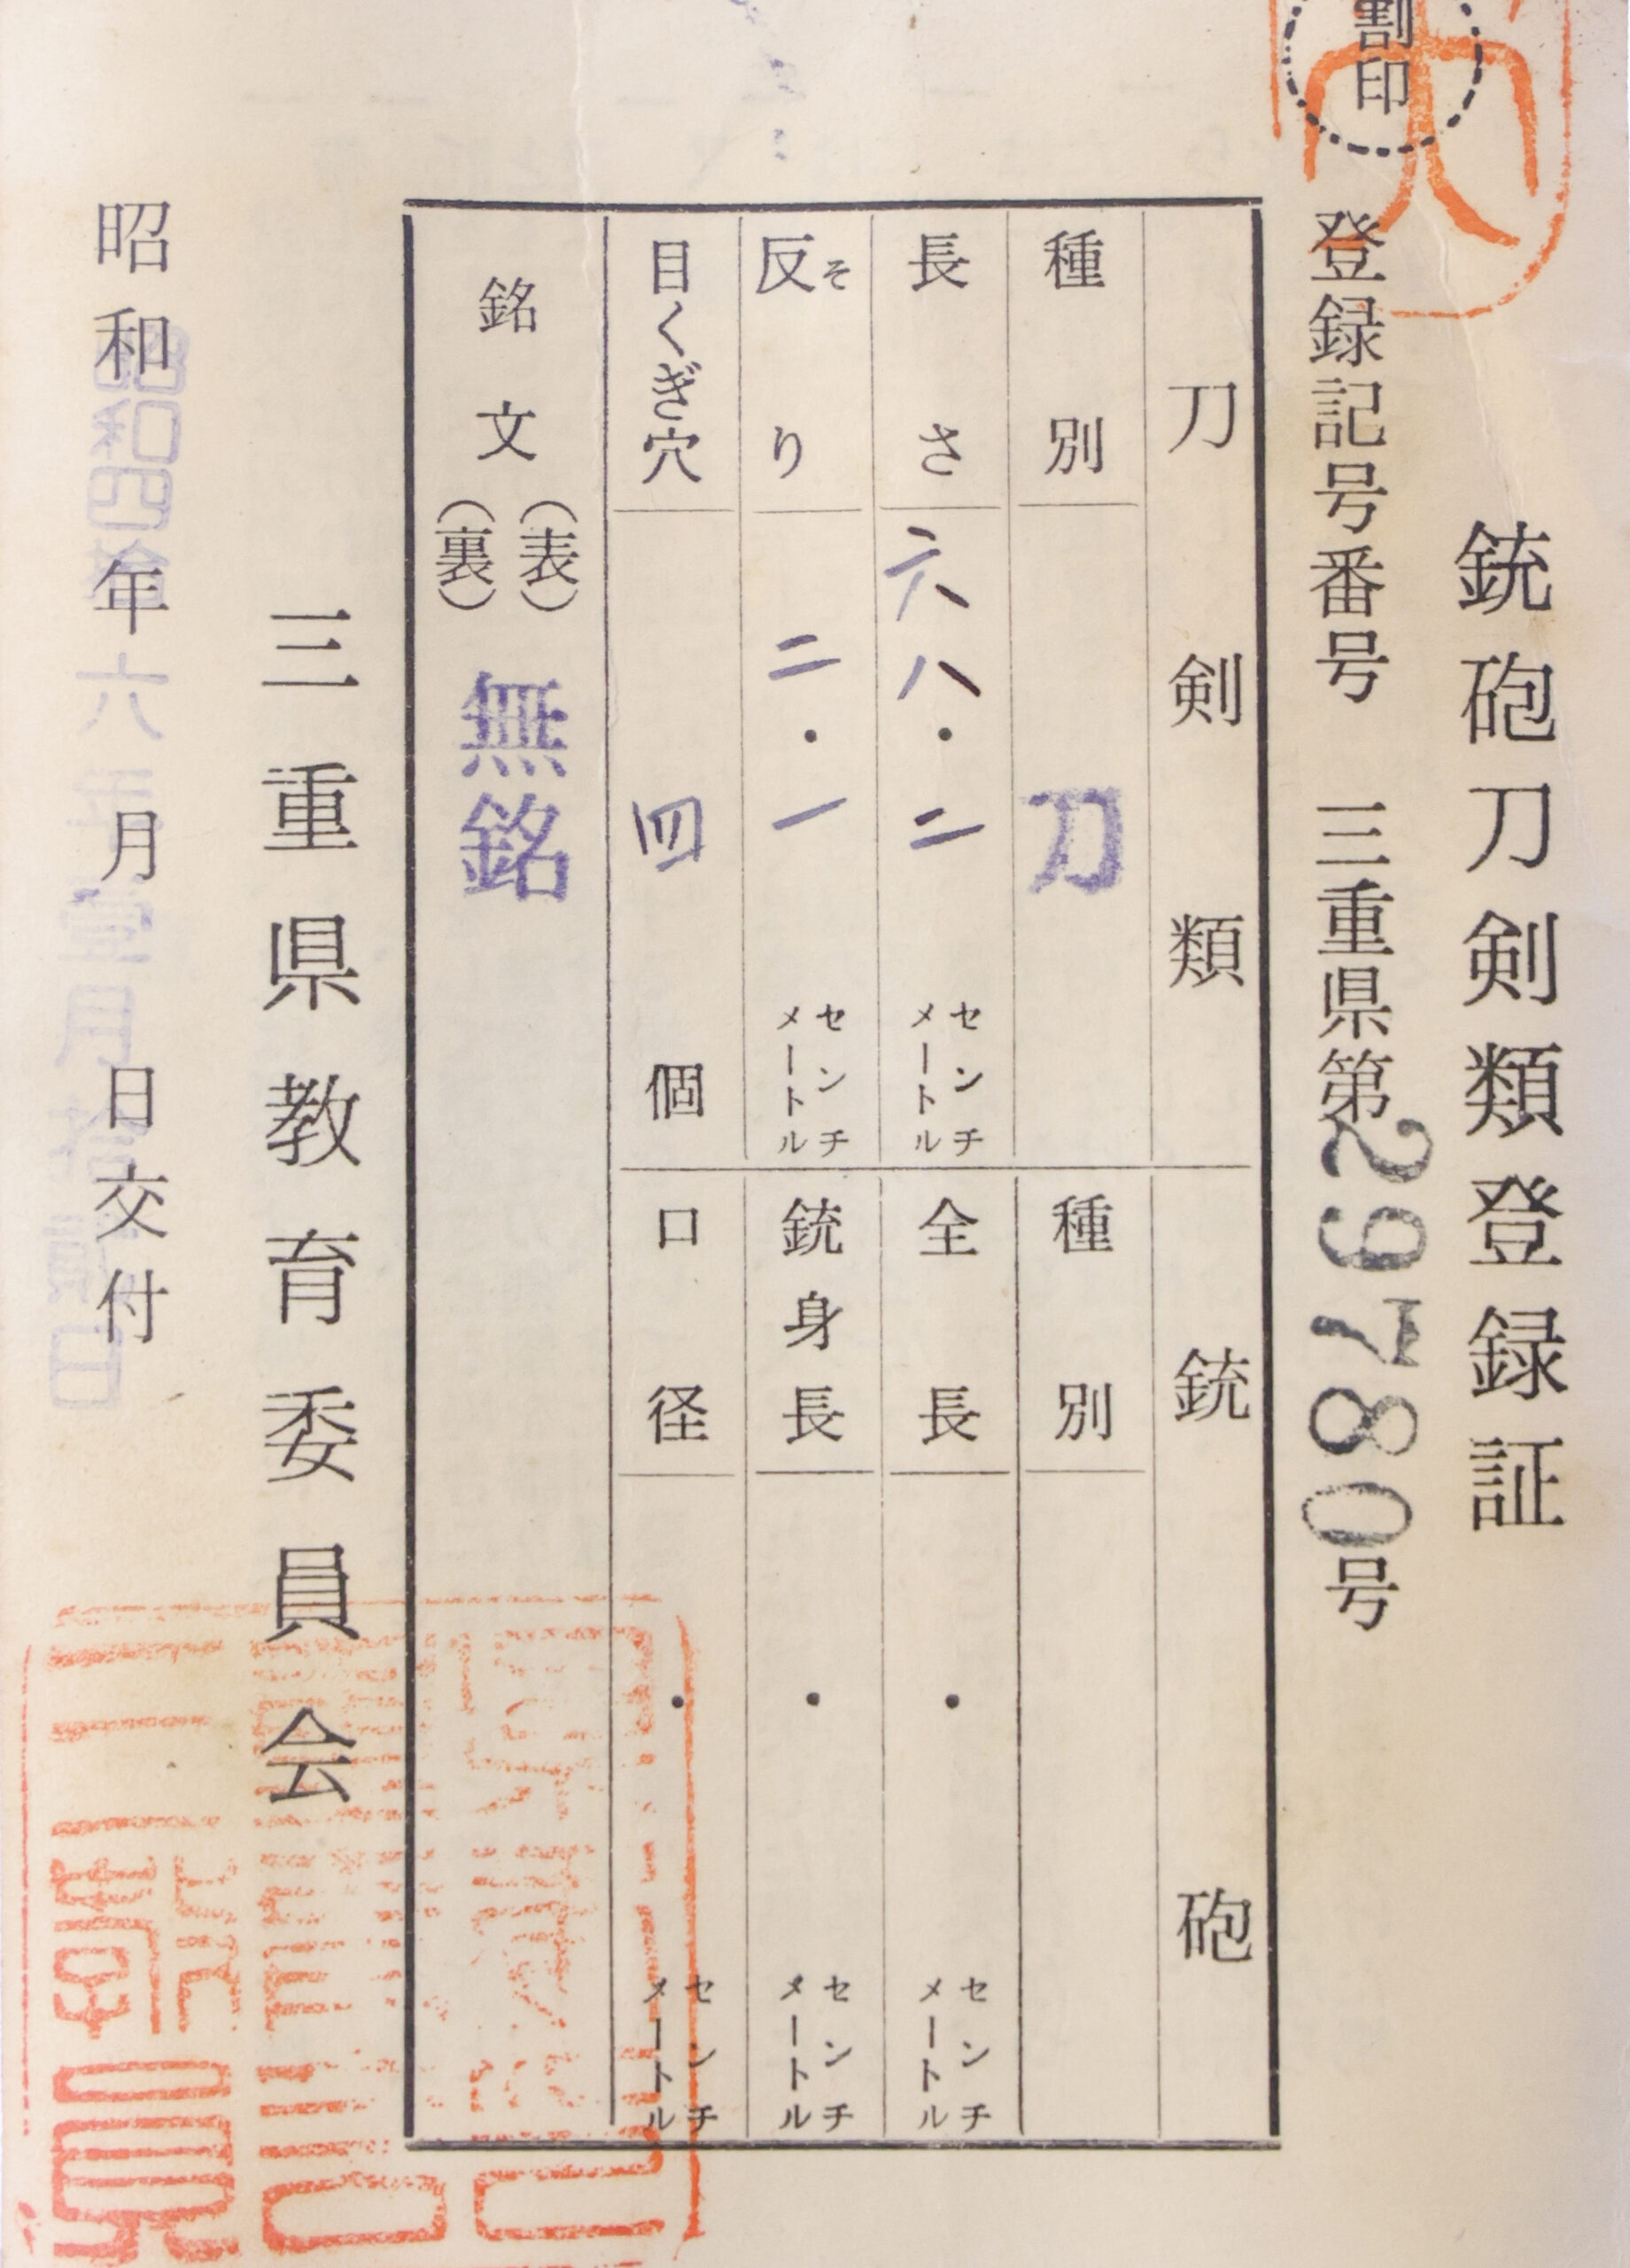 割印
銃砲刀剣類登録証
登録記号番号 三重県第29780号
刀剣類
種別 刀
長さ 六八・二 センチメートル
反り そ 二・一 センチメートル
目くぎ穴 四 個
銃砲
種別
全長 ・ センチメートル
銃身長 ・ センチメートル
口径 ・ センチメートル
銘文 (表) (裏) 無銘
三重県教育委員会
昭和 年 月 日交付
昭和四拾六年壹月拾 日